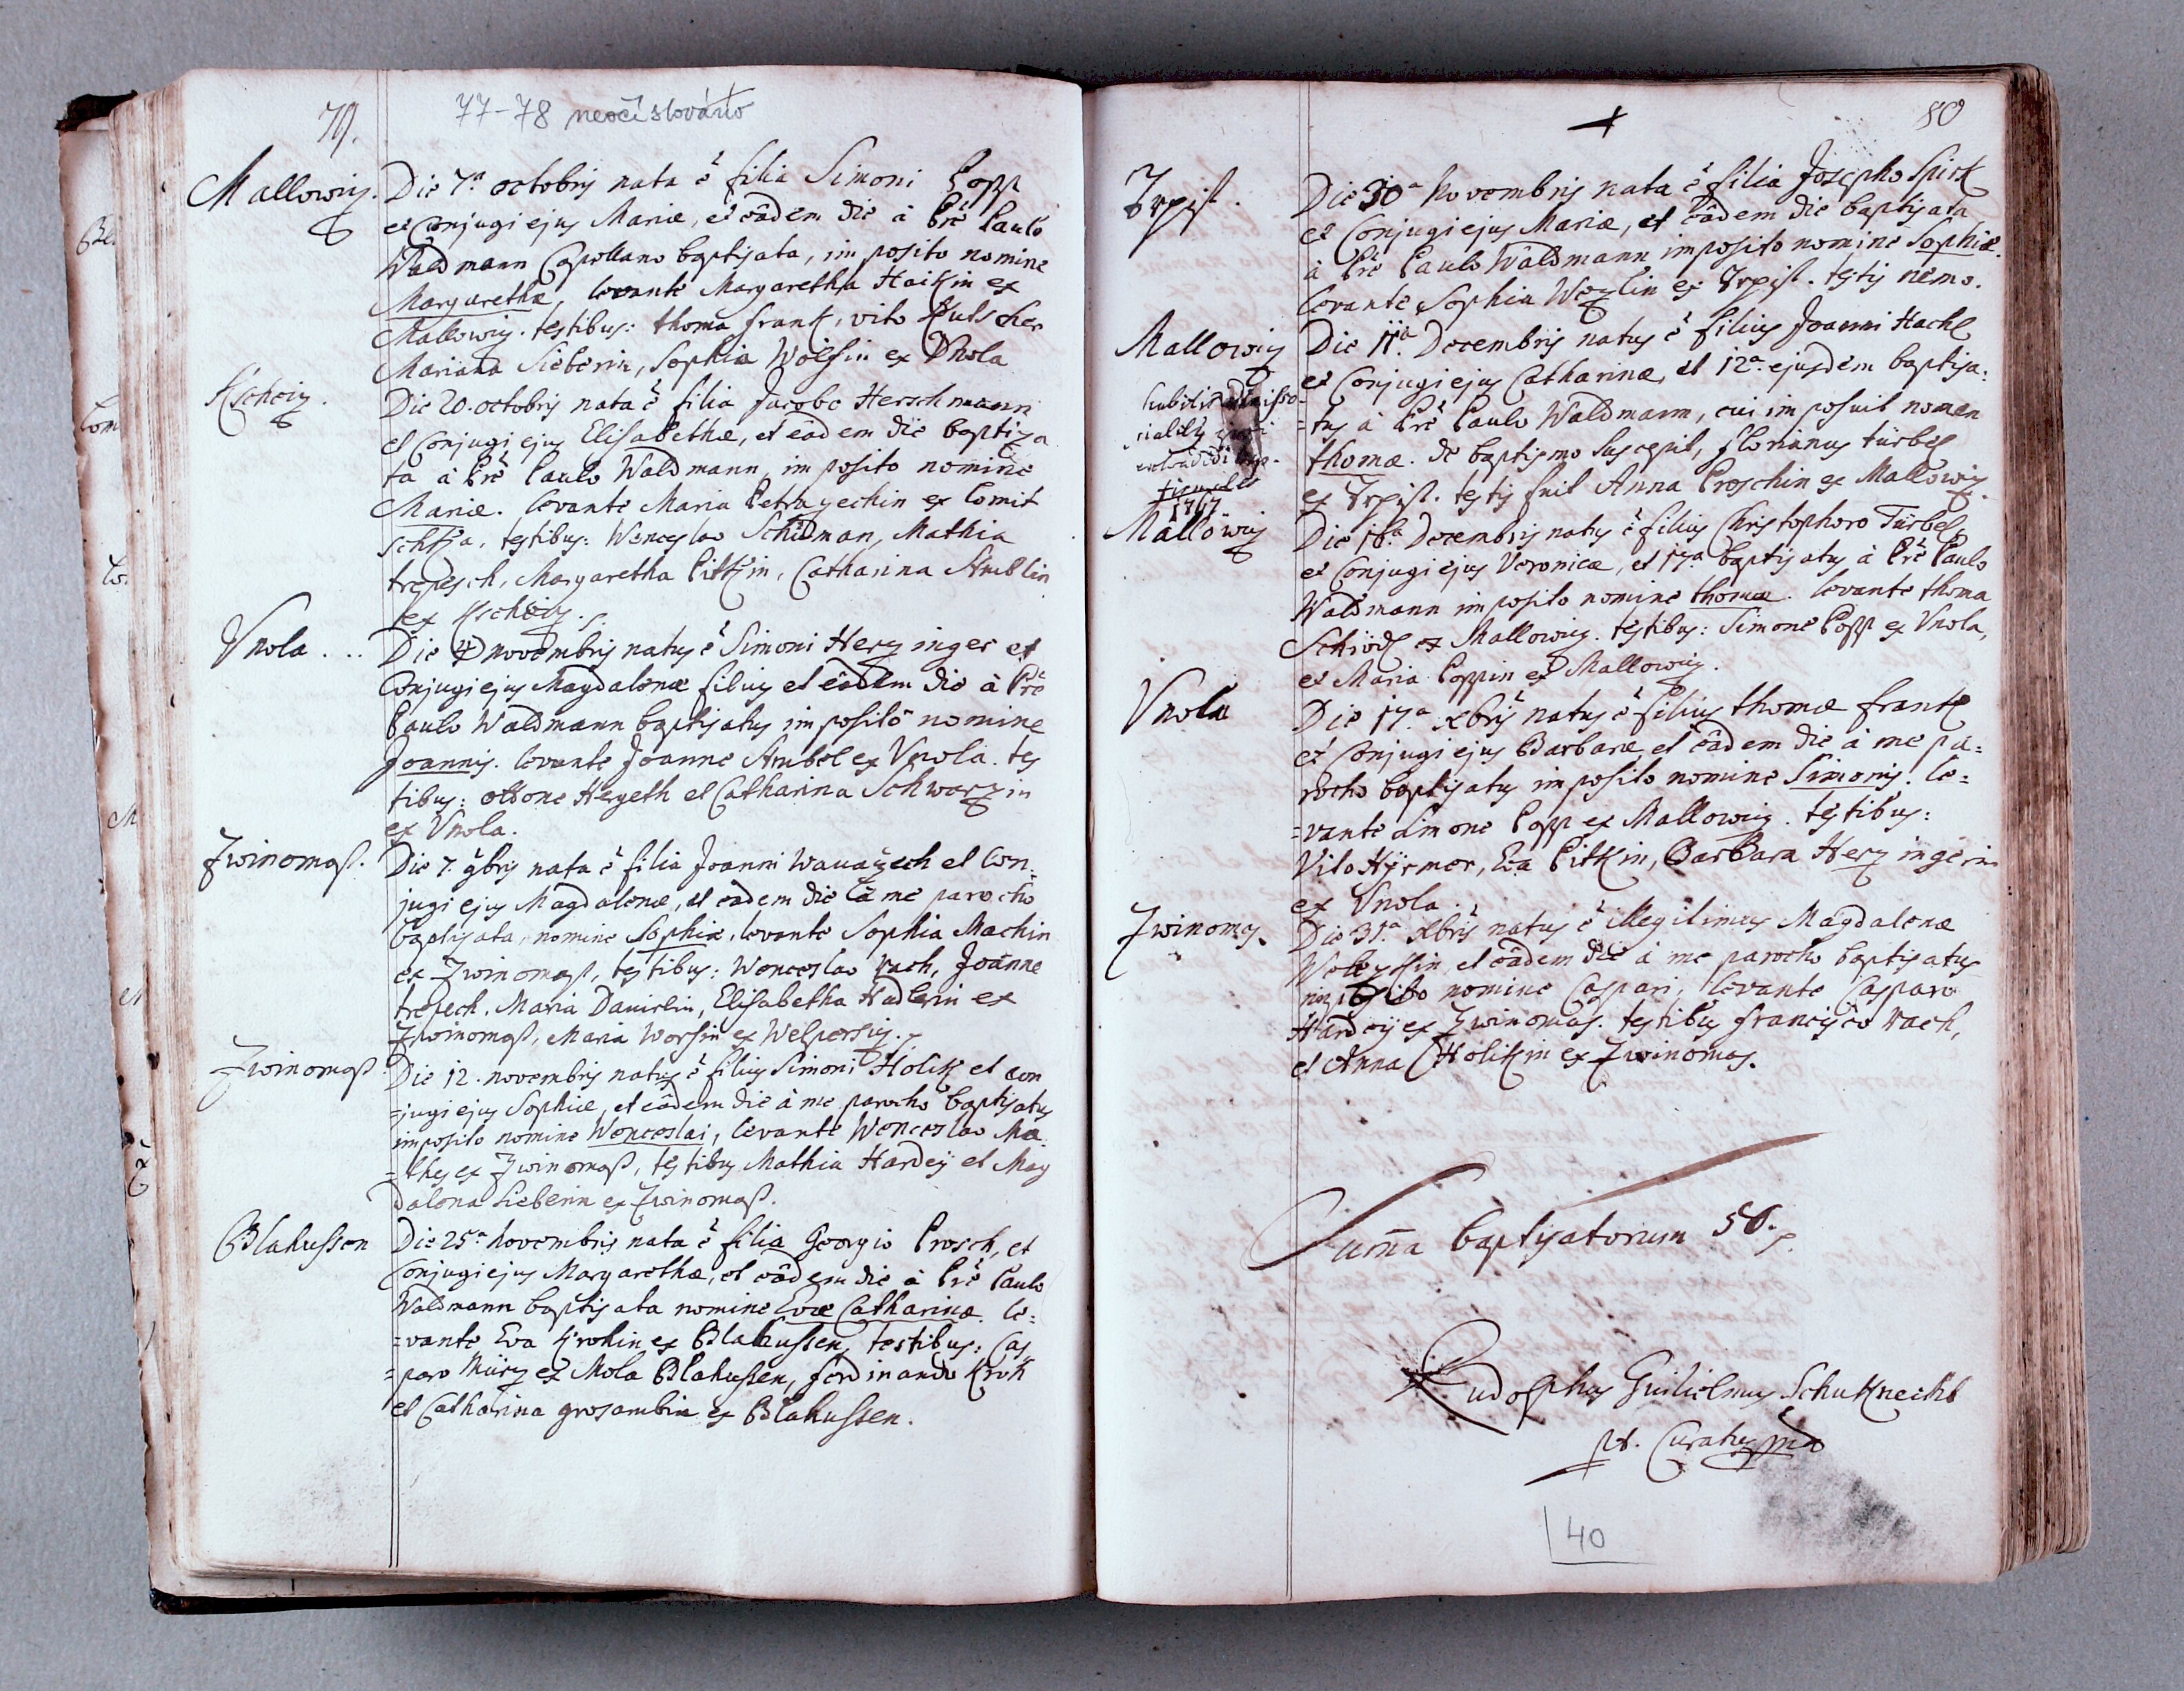 79.
77-78 neočíslováno
Mallowiz. Die 7.a octobris nata ē filia Simoni Popp
et Conjugi ejus Mariæ, et eâdem die à Prē Paulo
Waldmann Capellano baptisata, imposito nomine
Margarethæ, levante Margaretha Haikin ex
Mallowiz. testibus: thoma frank, vito Kutscher
Mariana Sieberin, Sophia Wölfin ex Vnola
Kscheiz. Die 20. octobris nata ē filia Jacobo Herschmann
et Conjugi ejus Elisabethæ, et eâdem die baptiza
ta à Prē Paulo Waldmann, imposito nomine
Mariæ. levante Maria Petrayechin ex Comit
schka, testibus: Wenceslao Schidman, Mathia
trepesch, Margaretha Pittkin, Catharina Stublin
ex Kscheiz.
Vnola... Die 4 novembris natus ē Simoni Herzinger et
Conjugi ejus Magdalenæ filius et eâdem die à Prē
Paulo Waldmann baptisatus imposito nomine
Joannis. levante Joanne Stubel ex Vnola. tes
tibus: Adone Hergeth et Catharina Schwarzin
ex Vnola.
Zwinomaß. Die 7. 9bris nata ē filia Joanni Wawazech et Con,
jugi ejus Magdalenæ, et eadem die à me parocho
baptisata, nomine Sophiæ, levante Sophia Machin
ex Zwinomaß, testibus: Wenceslao rach, Joanne
trepech. Maria Danielin, Elisabetha Hadlerin ex
Zwinomaß, Maria Worsin ex Welperschiz.
Zwinomaß Die 12. novembris natus ē filius Simoni Holik et con
=jugi ejus Sophiæ, et eâdem die à me parocho baptisatus
imposito nomine Wenceslai, levante Wenceslao Ma
=thes ex Zwinomaß, testibus Mathia Hardeÿ et Mag
dalena Lieberin ex Zwinomaß.
Blahussen Die 25.a novembris nata ē filia Georgio Prosch, et
Conjugi ejus Margarethæ, et eâdem die à Prē Paulo
Waldmann baptisata nomine Evæ Catharinæ. le=
=vante Eva Krohin ex Blahussen, testibus: Cas
=paro Mürz ex Mola Blahussen, ferdinando Kroh
et Catharina grosambin ex Blahussen.
80
Trpist. Die 30a Novembris nata ē filia Josepho Spirk
et Conjugi ejus Mariæ, et eâdem die baptisata
à Prē Paulo Waldmann imposito nomine Sophiæ.
levante Sophia Wezlin ex Trpist. testis nemo.
Mallowiz Die 11a. Decembris natus ē filius Joanni Hachl
et Conjugi ejus Catharinæ, et 12a. ejusdem baptisa=
=tus à Prē Paulo Waldmann, cui imposuit nomen
thomæ. de baptismo suscepit, florianus türbel
ex Trpist. testis fuit Anna Proschin ex Mallowiz.
1767
Mallowiz Die 16.a Decembris natus ē filius Christophoro Türbel
et Conjugi ejus Veronicæ, et 17.a baptisatus à Prē Paulo
Waldmann imposito nomine thomæ. levante thoma
Schiödl ex Mallowiz. testibus: Simone Popp ex Vnola,
et Maria Poppin ex Mallowiz.
Vnola Die 17.a xbris natus ē filius thomæ frank
et Conjugi ejus Barbaræ, et eâdem die à me pa=
rocho baptisatus imposito nomine Simonis. le=
=vante Simone Popp ex Mallowiz. testibus:
Vito Hÿrmer, Eva Pitkin, Barbara Herzingerin
ex Vnola.
Zwinomas. Die 31.a Xbris natus ē illegitimus Magdalenæ
et eâdem die à me parocho baptisatus
imposito nomine Caspari, levante Casparo
Hardeÿ ex Zwinomas. testibus francisco rach,
et Anna Holikin ex Zwinomas.
Suma baptisatorum 50.
Rudolphus Guilielmus Schuknecht
pt. Curatus mp
40